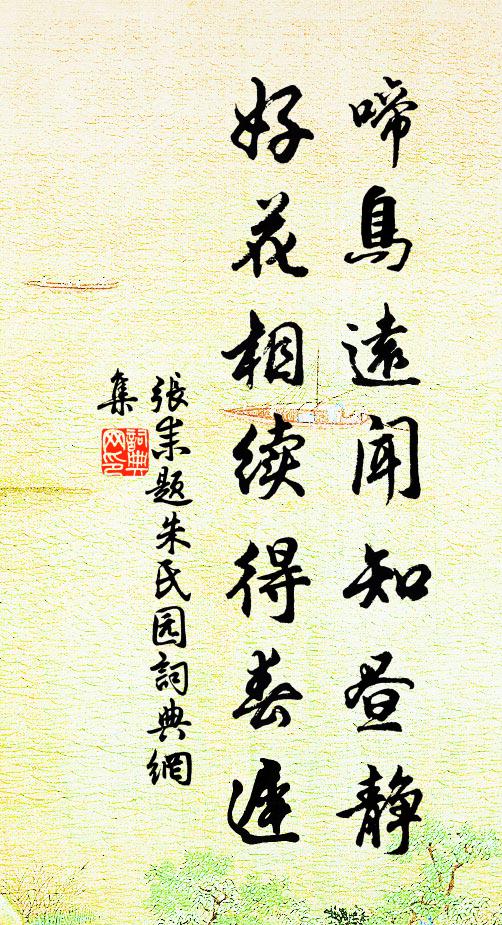 啼鳥遠聞知昼静
好花相續得春遲
張耒题朱氏园詞典網
集
詞典
网印